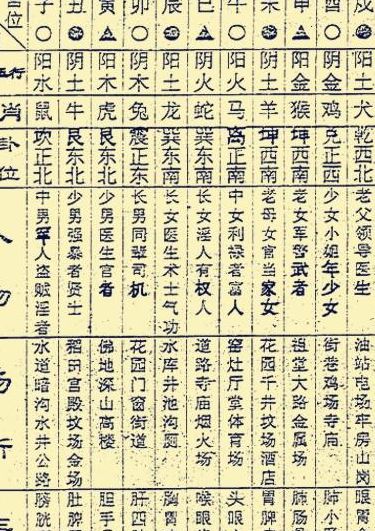 位 子 丑 寅 卯 辰 巳 午 未 申 酉 戌
五行 阳水 阴土 阳木 阴木 阳土 阴火 阳火 阴土 阳金 阴金 阳土
肖 鼠 牛 虎 兔 龙 蛇 马 羊 猴 鸡 犬
卦位 坎正北 艮东北 艮东北 震正东 巽东南 巽东南 离正南 坤西南 坤西南 兑正西 乾西北
人物
中男罪人盗贼淫者
少男强暴者贤士
少男医生宫者
长男同辈司机
长女医生术士气功
长女淫人有权人
中女利禄者富人
老母女官当家女
老女军警武者
少女小姐年少女
老父领导医生
场所
水道暗沟水井公路
稻田宫殿坟场金场
佛地深山高楼
花园门窗街道
水库井池沟厕
道路寺庙烟火场
窑灶厅堂体育场
花园千井坟场酒店
祖堂大路金属场
街巷鸡场寺庙
油站电场牢房山岗
膀胱 肚脾 胆手 肝四 胸胃 喉眼 头眼 胃脾 肺肠 肺小 眼胃